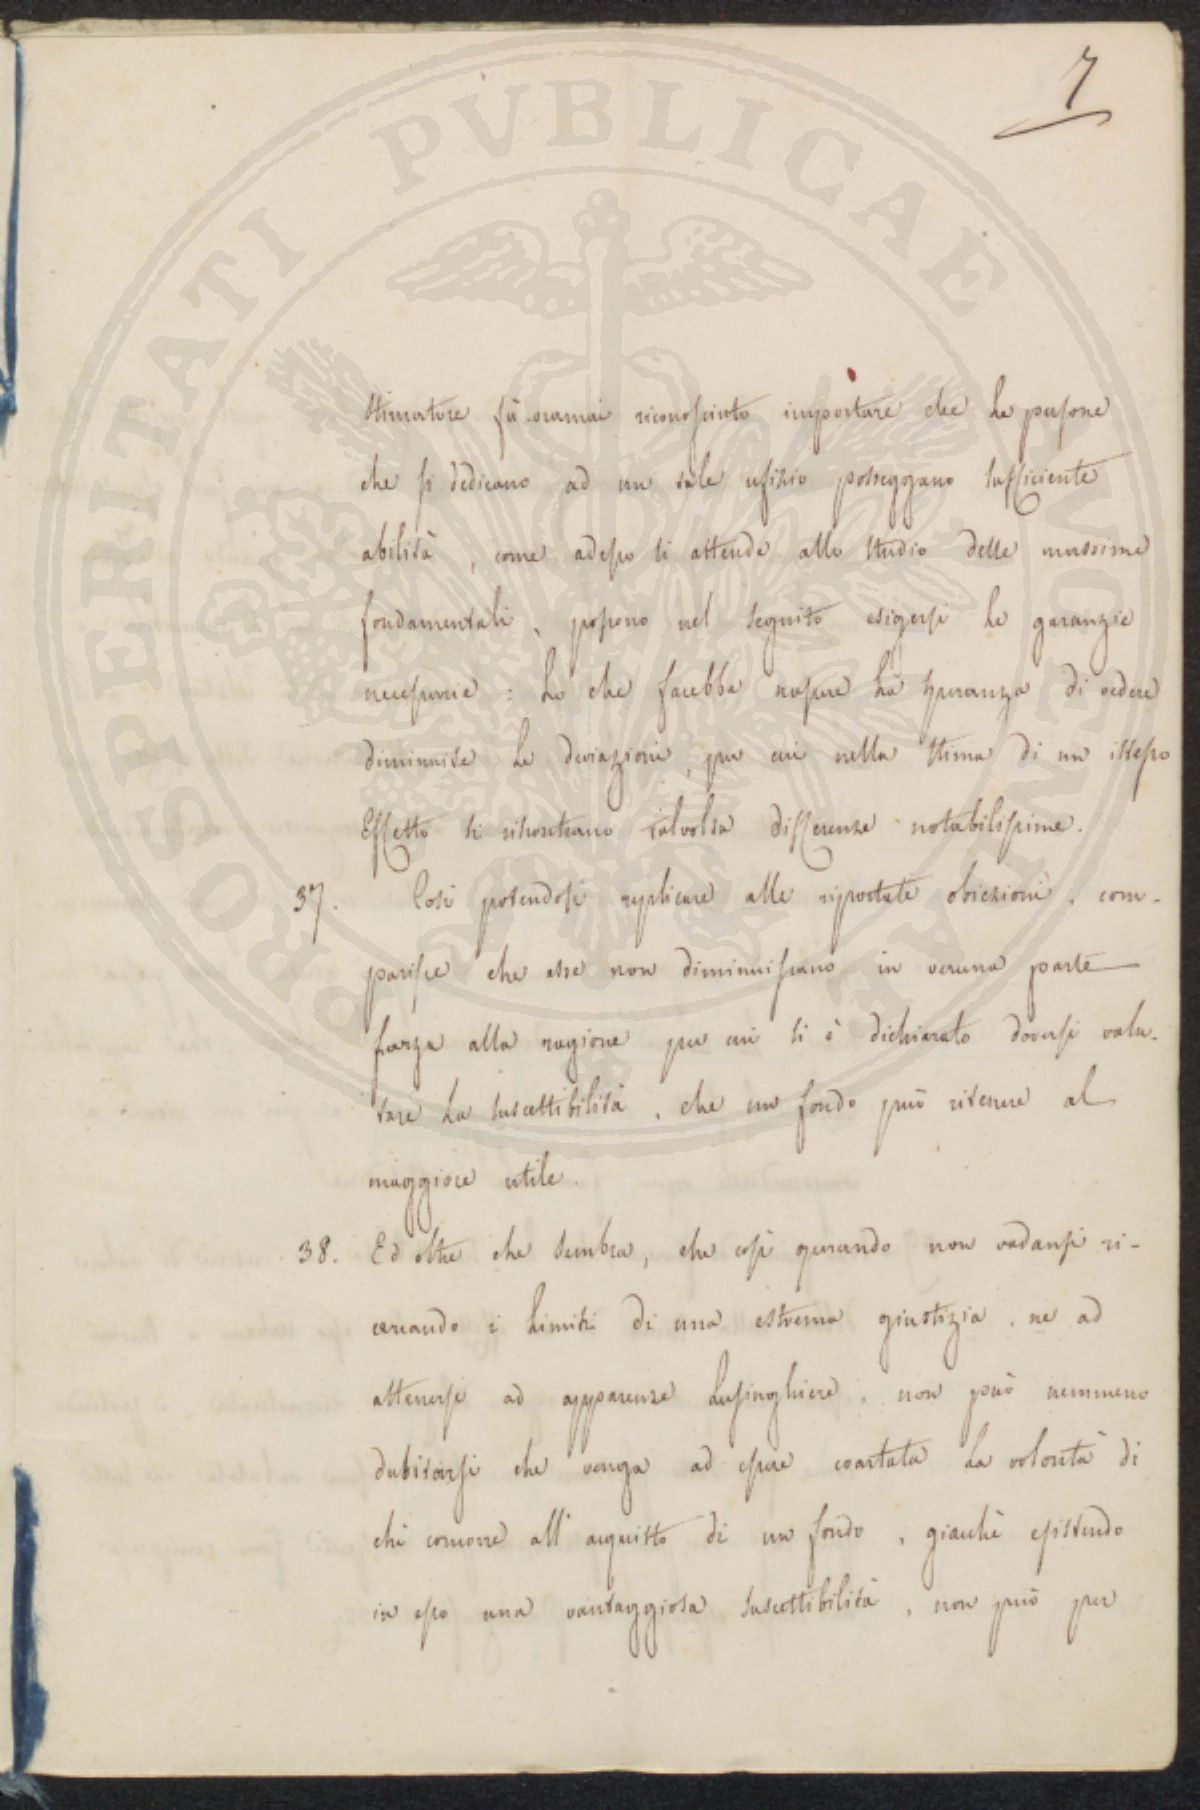 7
stimatore fù oramai riconosciuto importare che le persone
che si dedicano ad un tale ufizio posseggano sufficiente
abilità, come adesso si attende allo studio delle massime
fondamentali, possono nel seguito esigersi le garanzie
necessarie: Lo che farebbe nascere la speranza di vedere
diminuite le deviazioni, per cui nella stima di un istesso
Effetto si riscontrano talvolta differenze notabilissime.
37. Così potendosi replicare alle riportate obiezioni, com-
parisce che esse non diminuiscano in veruna parte
forza alla ragione per cui si è dichiarato doversi valu-
tare la suscettibilità, che un fondo può ritenere al
maggiore utile.
38. Ed oltre che sembra, che così operando non vadansi ri-
cercando i limiti di una estrema giustizia, ne ad
attenersi ad apparenze lusinghiere, non può nemmeno
dubitarsi che venga ad essere coartata la volontà di
chi concorre all'acquisto di un fondo, giacchè esistendo
in esso una vantaggiosa suscettibilità, non può per
PROSPERITATI PUBLICAE AUGENDAE